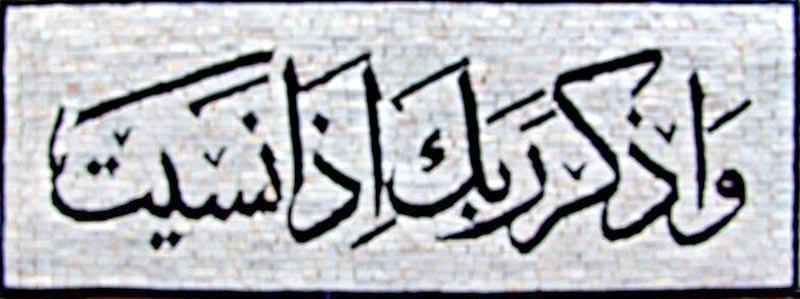 وَاذكر رَبكَ اِذَا نَسَيتَ